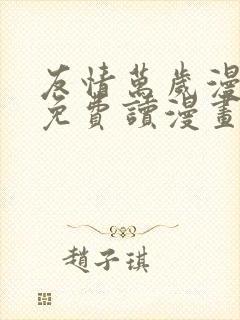 友情萬歲漫
免費讀漫畫
趙子琪